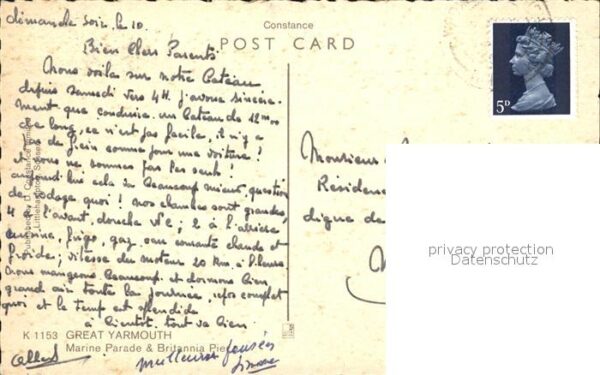 dimanche soir le 10
Constance
POST CARD
Bien Chers Parents
Nous voila sur notre bateau
depuis samedi vers 4H. j'avoue sincère-
ment que conduire un bateau de 12m00
de long, ce n'est pas facile, il n'y a
pas de frein comme pour une voiture !
et nous ne sommes pas les seuls !
aujourd'hui cela va beaucoup mieux, question
de rodage quoi ! nos chambres sont grandes,
4 à l'avant, douche Wc ; 2 à l'arrière
cuisine, frigo, gaz, eau courante chaude et
froide ; vitesse du moteur 20 km. à l'heure
Nous mangeons beaucoup et dormons bien
grand air toute la journée, repos complet
quoi et le temps est splendide
à bientôt, tout va bien
Albert
meilleures pensées
Simone
5D
Monsieur
Résidence
digue de
privacy protection
Datenschutz
K 1153 GREAT YARMOUTH
Marine Parade & Britannia Pier